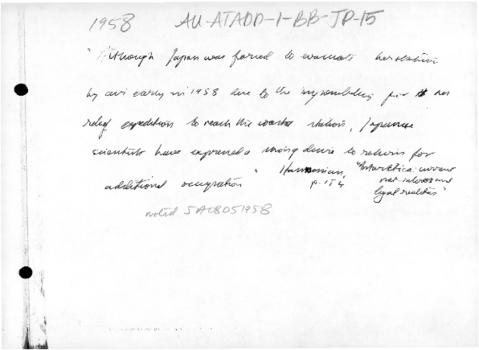 1958 AU-ATADD-1-BB-JP-15
"Although Japan was forced to evacuate her station
by air early in 1958 due to the impossibility for her
relief expedition to reach the coastal station, Japanese
scientists have expressed a strong desire to return for
additional occupation" Hanessian, "Antarctica: current
p. 154 nat. interests and
legal realities"
noted SA08051958